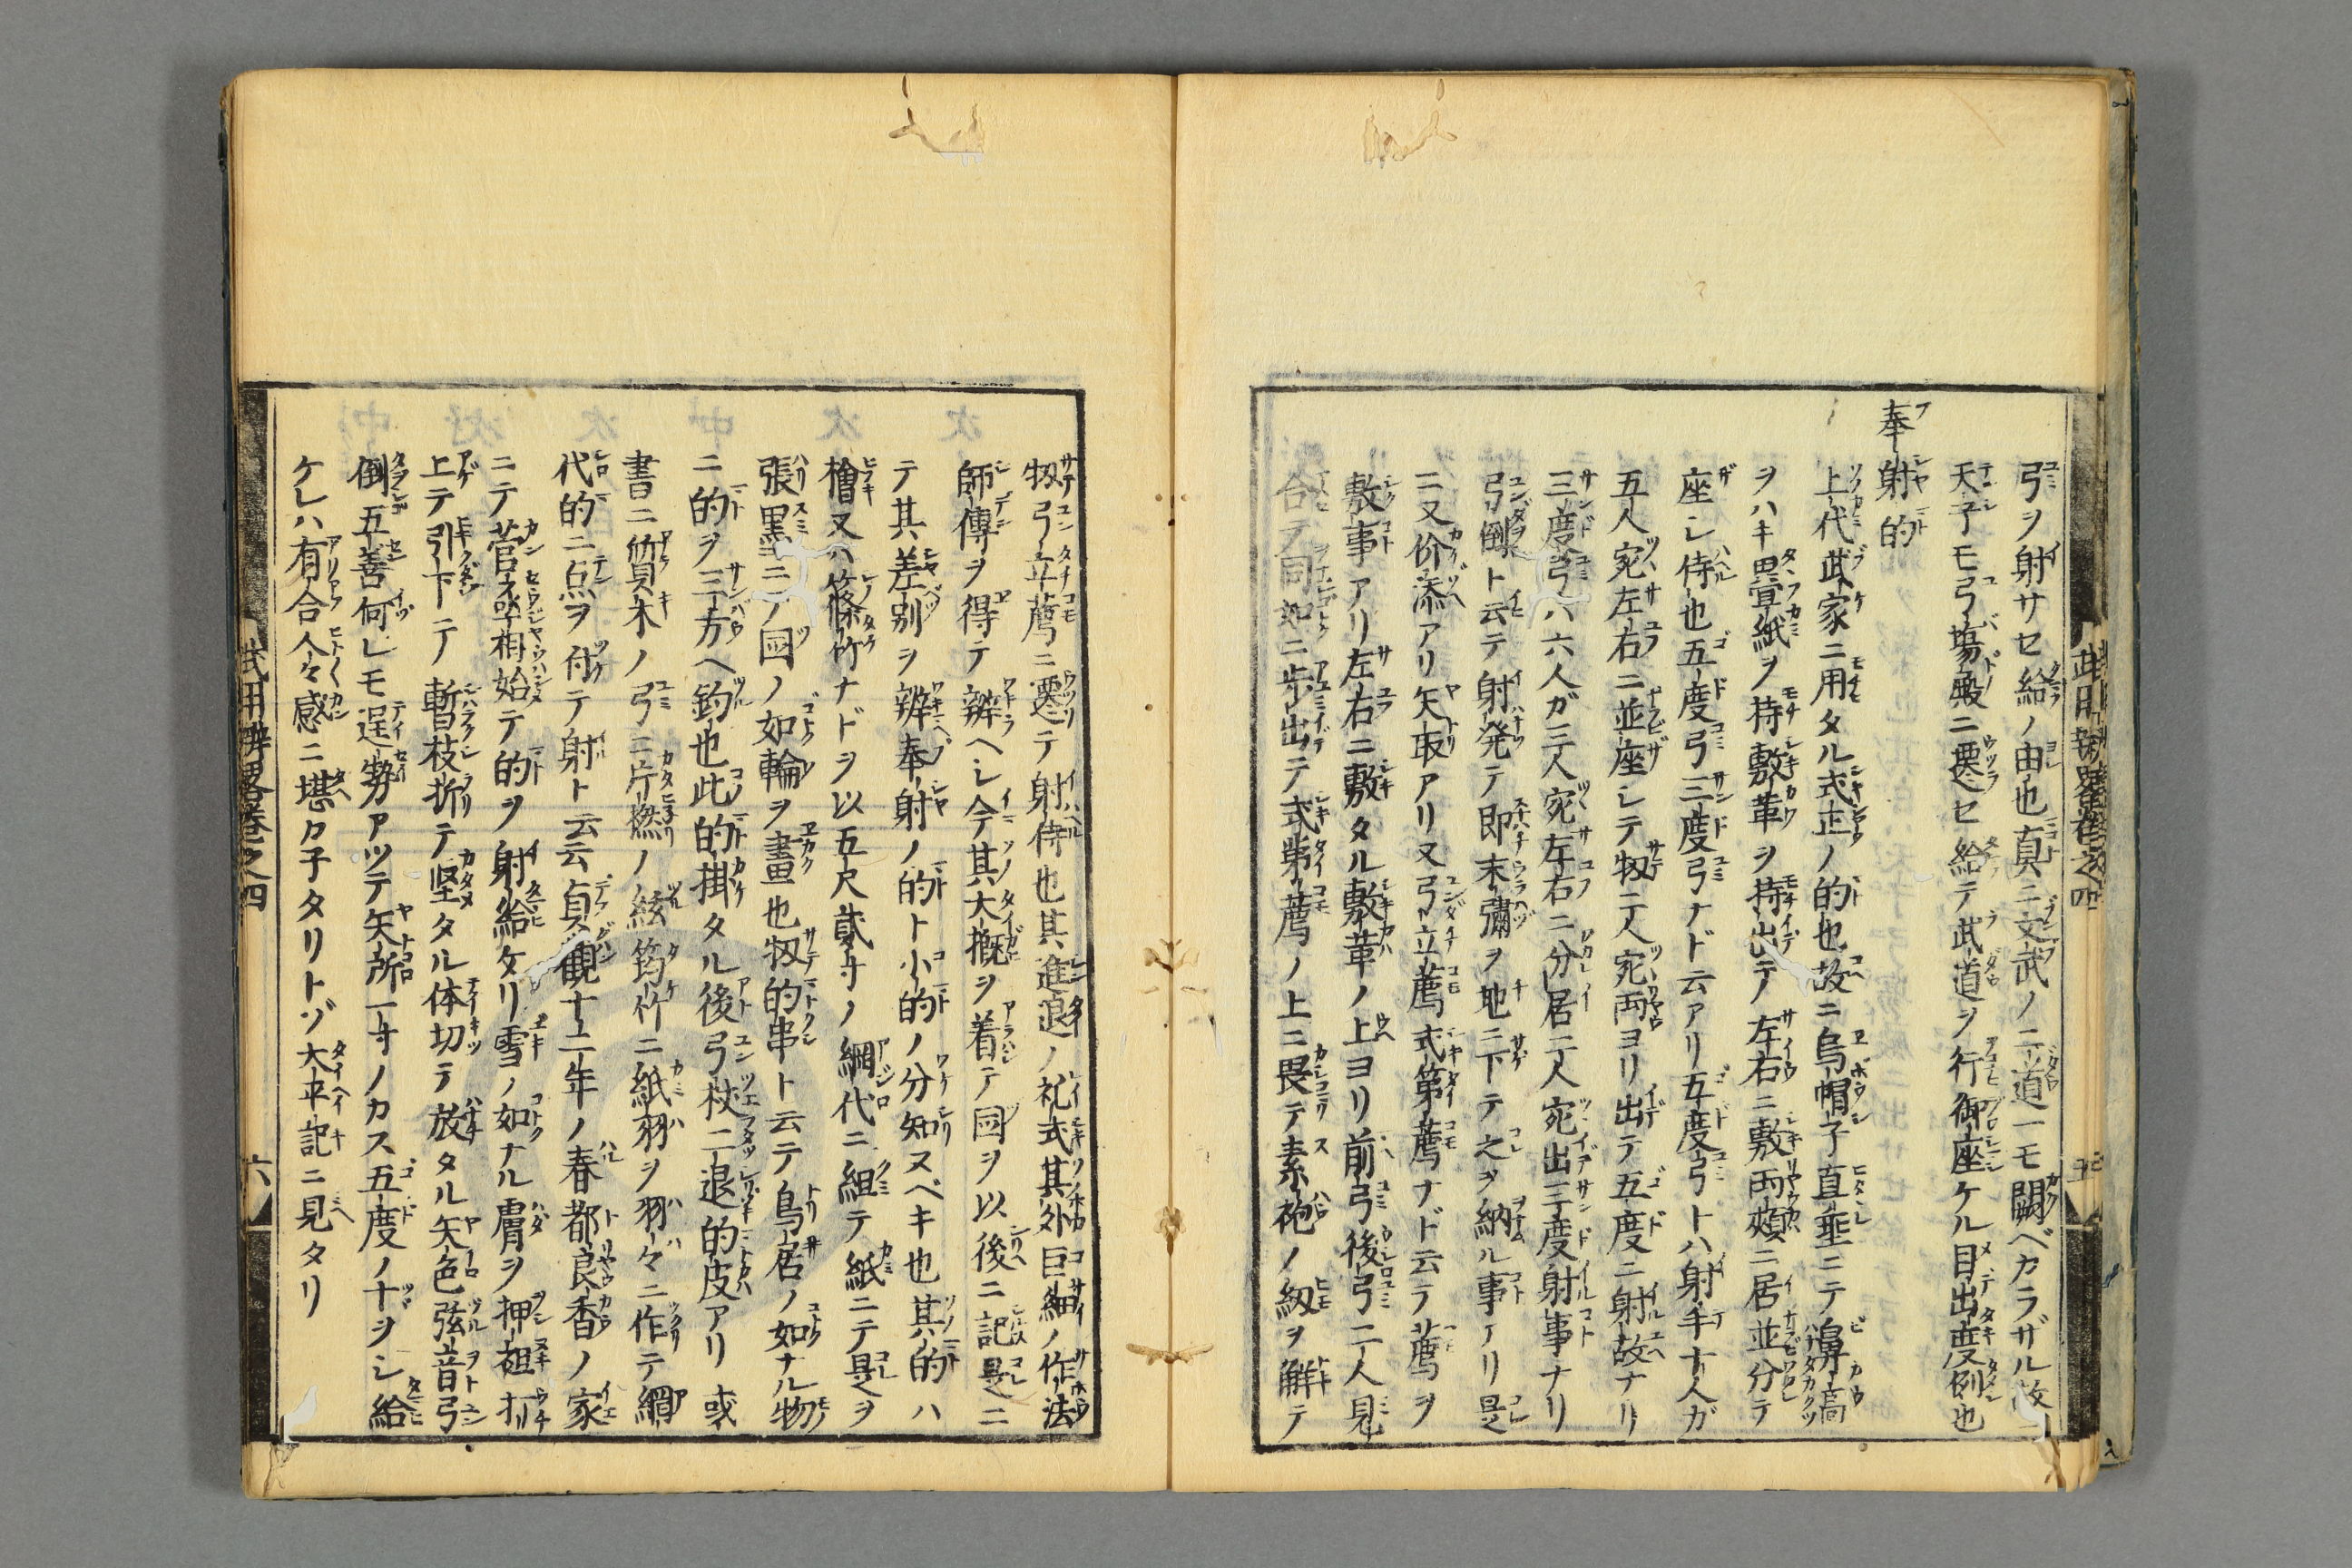 弓ヲ射サセ給ノ由也真ニ文武ノ二道一モ闕ベカラザル故ニ
天子モ弓塲殿ニ遷セ給テ武道ヲ行御座ケル目出度例也
奉射的
上代武家ニ用タル式正ノ的也故ニ烏帽子直垂ニテ鼻高
ヲハキ畳紙ヲ持敷革ヲ持出テ左右ニ敷両頰ニ居並分テ
座シ侍也五度弓三度弓ナド云アリ五度弓トハ射手十人ガ
五人宛左右ニ並座シテ扨二人宛両ヨリ出テ五度ニ射故ナリ
三度弓ハ六人ガ三人宛左右ニ分居二人宛出三度射事ナリ
弓倒ト云テ射発テ即末彇ヲ地ニ下テ之ヲ納ル事アリ是
ニ又介添アリ矢取アリ又弓立薦式第薦ナド云テ薦ヲ
敷事アリ左右ニ敷タル敷革ノ上ヨリ前弓後弓二人見
合テ同如ニ歩出テ式第薦ノ上ニ畏テ素袍ノ紐ヲ解テ
武用辨畧卷之四
五
扨弓立薦ニ遷テ射侍也其進退ノ礼式其外巨細ノ作法
師傳ヲ得テ辨ヘシ今其大概ヲ着テ圖ヲ以後ニ記是ニ
テ其差別ヲ辨奉射ノ的ト小的ノ分知ヌベキ也其的ハ
檜又ハ篠竹ナドヲ以五尺貳寸ノ網代ニ組テ紙ニテ是ヲ
張黒ニテ圖ノ如輪ヲ畫也扨的串ト云テ鳥居ノ如ナル物
ニ的ヲ三方ヘ釣也此的掛タル後弓杖二退的皮アリ或
書ニ質木ノ弓ニ片撚ノ絃筠竹ニ紙羽ヲ羽々ニ作テ網
代的ニ点ヲ付テ射ト云云貞観十二年ノ春都良香ノ家
ニテ菅丞相始テ的ヲ射給ケリ雪ノ如ナル膚ヲ押袒打
上テ引下テ暫枝折テ堅タル体切テ放タル矢色弦音弓
倒五善何レモ逞勢アツテ矢所一寸ノカス五度ノ十ヲシ給
ケレハ有合人々感ニ堪カ子タリトゾ太平記ニ見タリ
武用辨畧卷之四
六